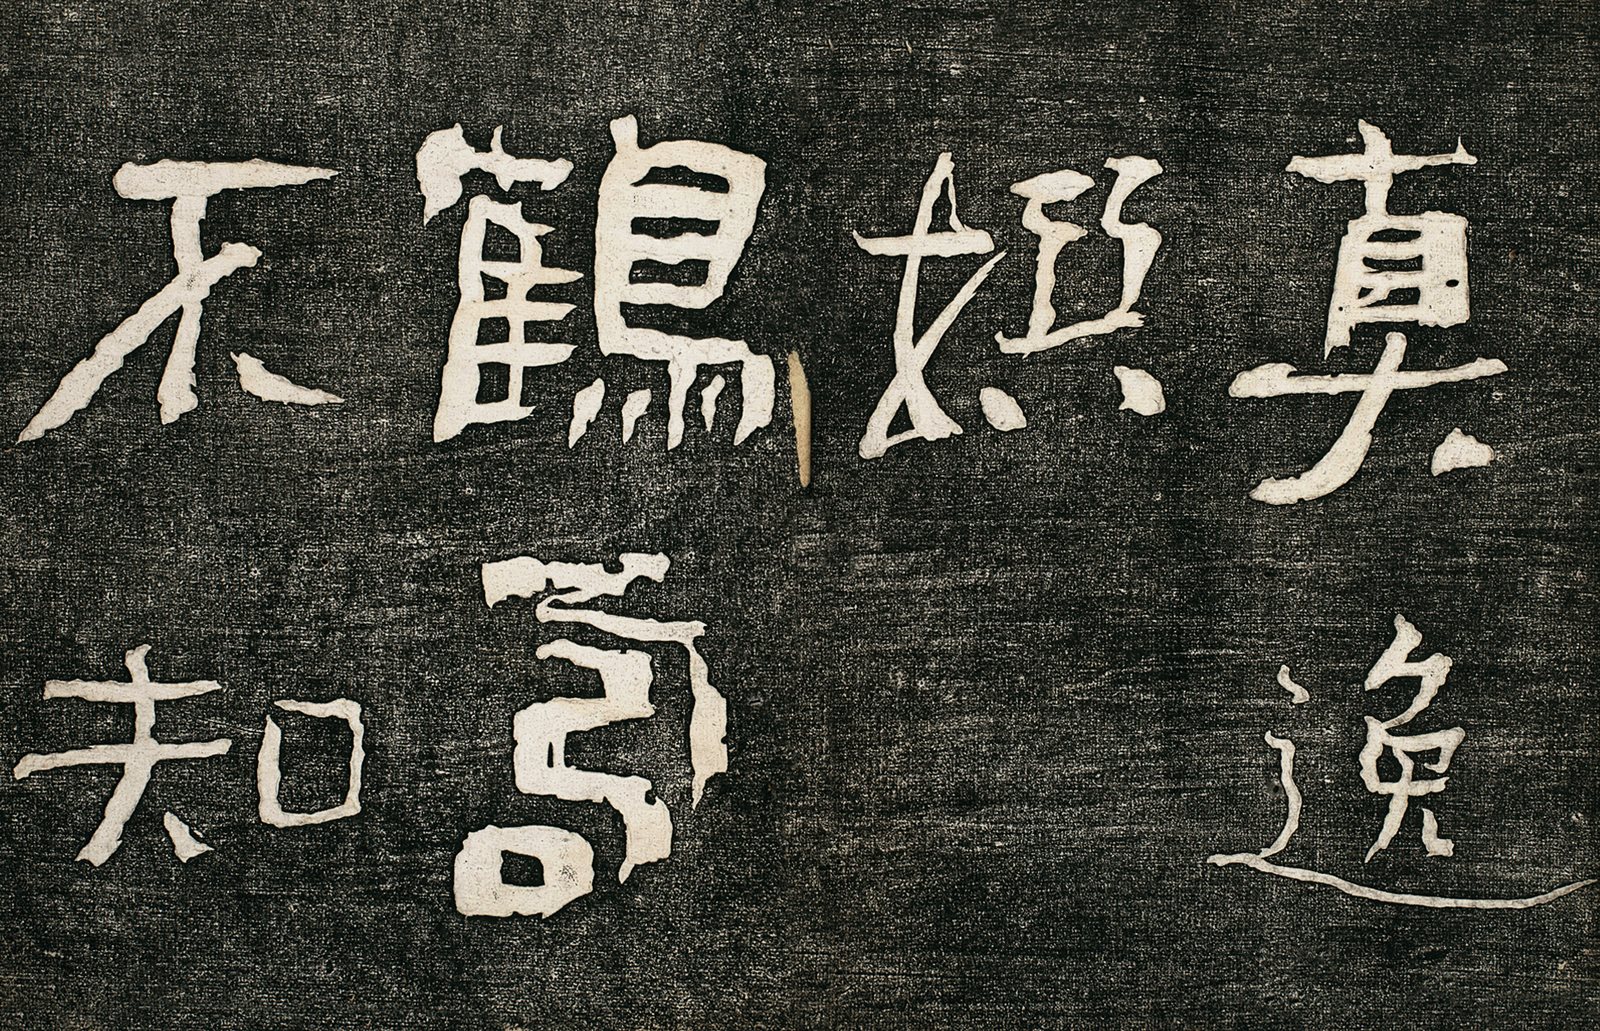 真逸
撰
鶴壽
不知